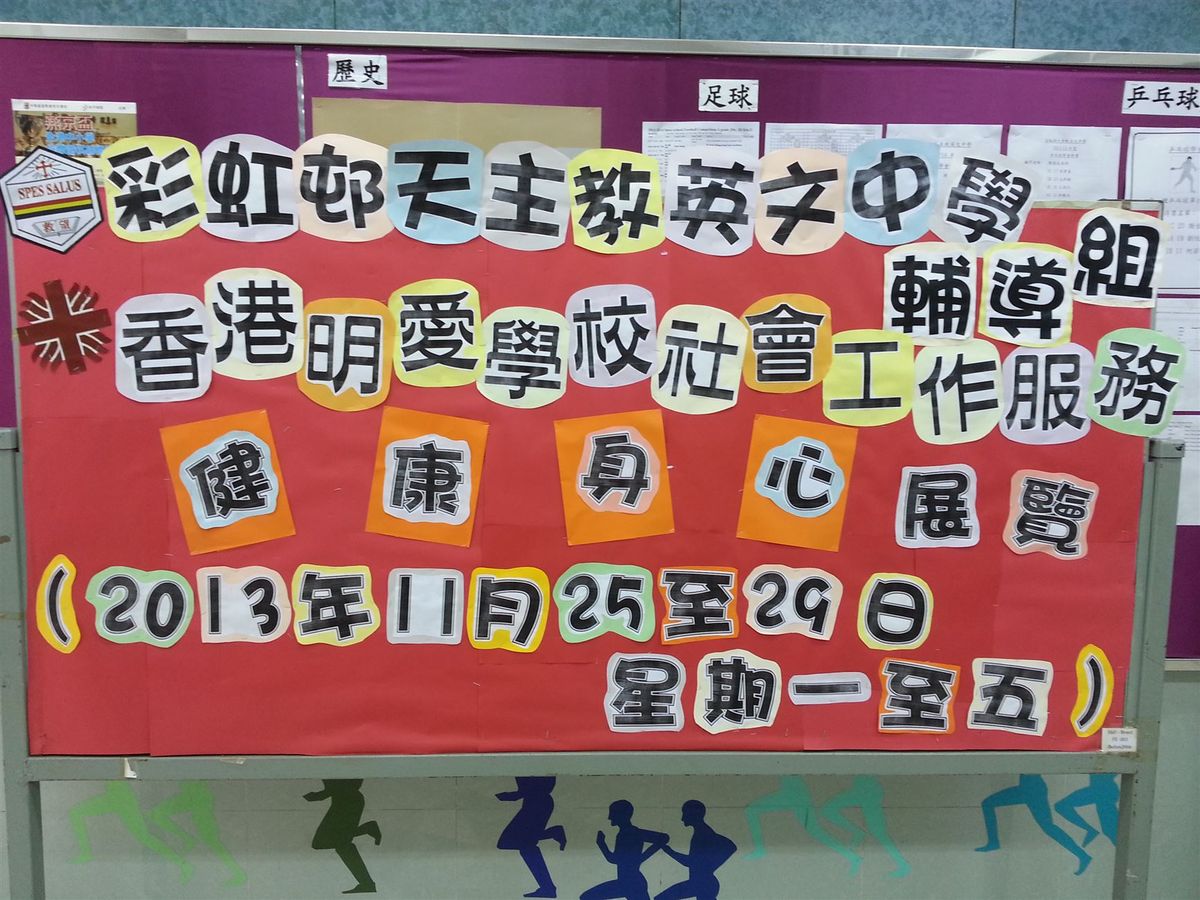 歷史
足球
乒乓球
SPES SALUS
教望
彩虹邨天主教英文中學
輔導組
香港明愛學校社會工作服務
健康身心展覽
(2013年11月25至29日
星期一至五)